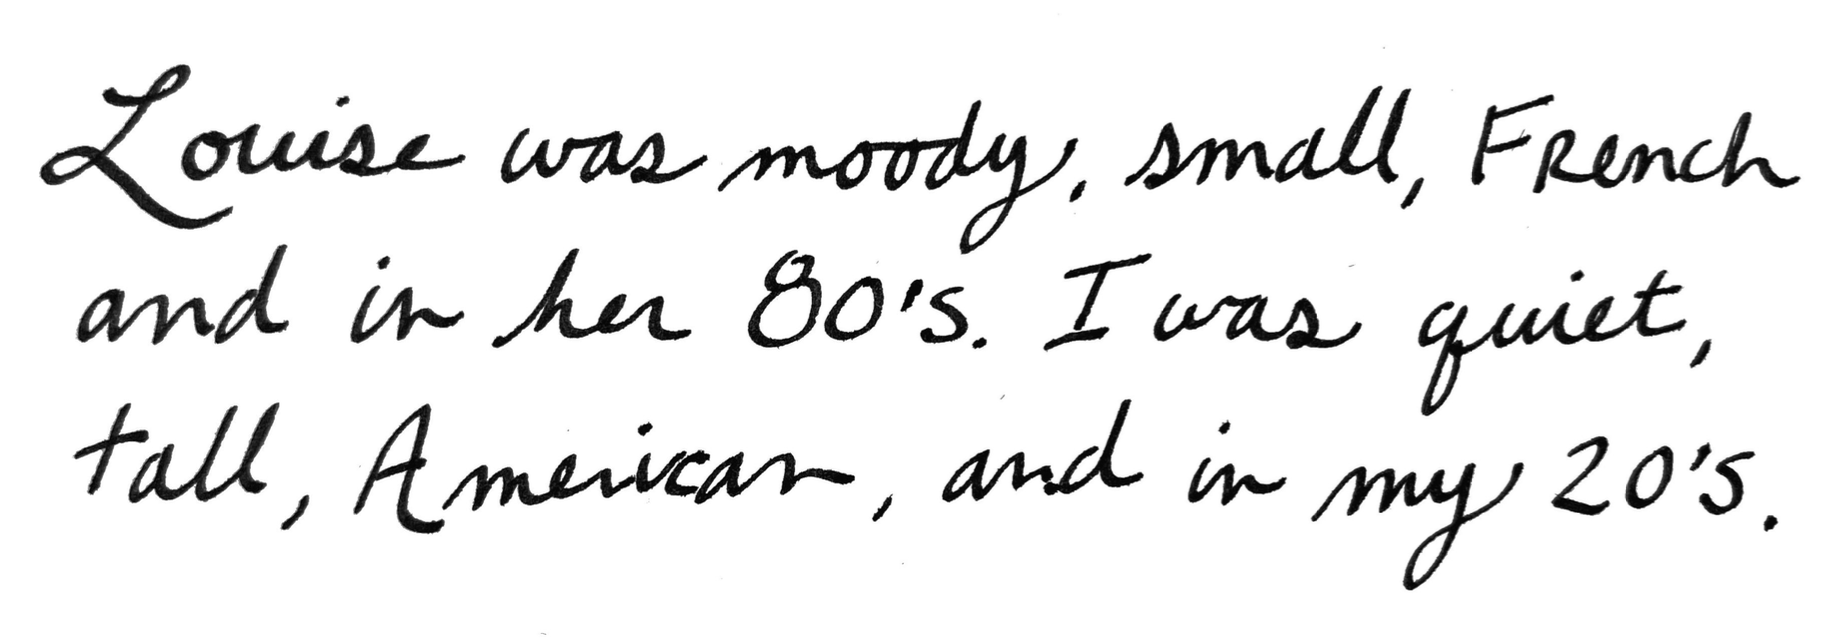 Louise was moody, small, French
and in her 80's. I was quiet,
tall, American, and in my 20's.